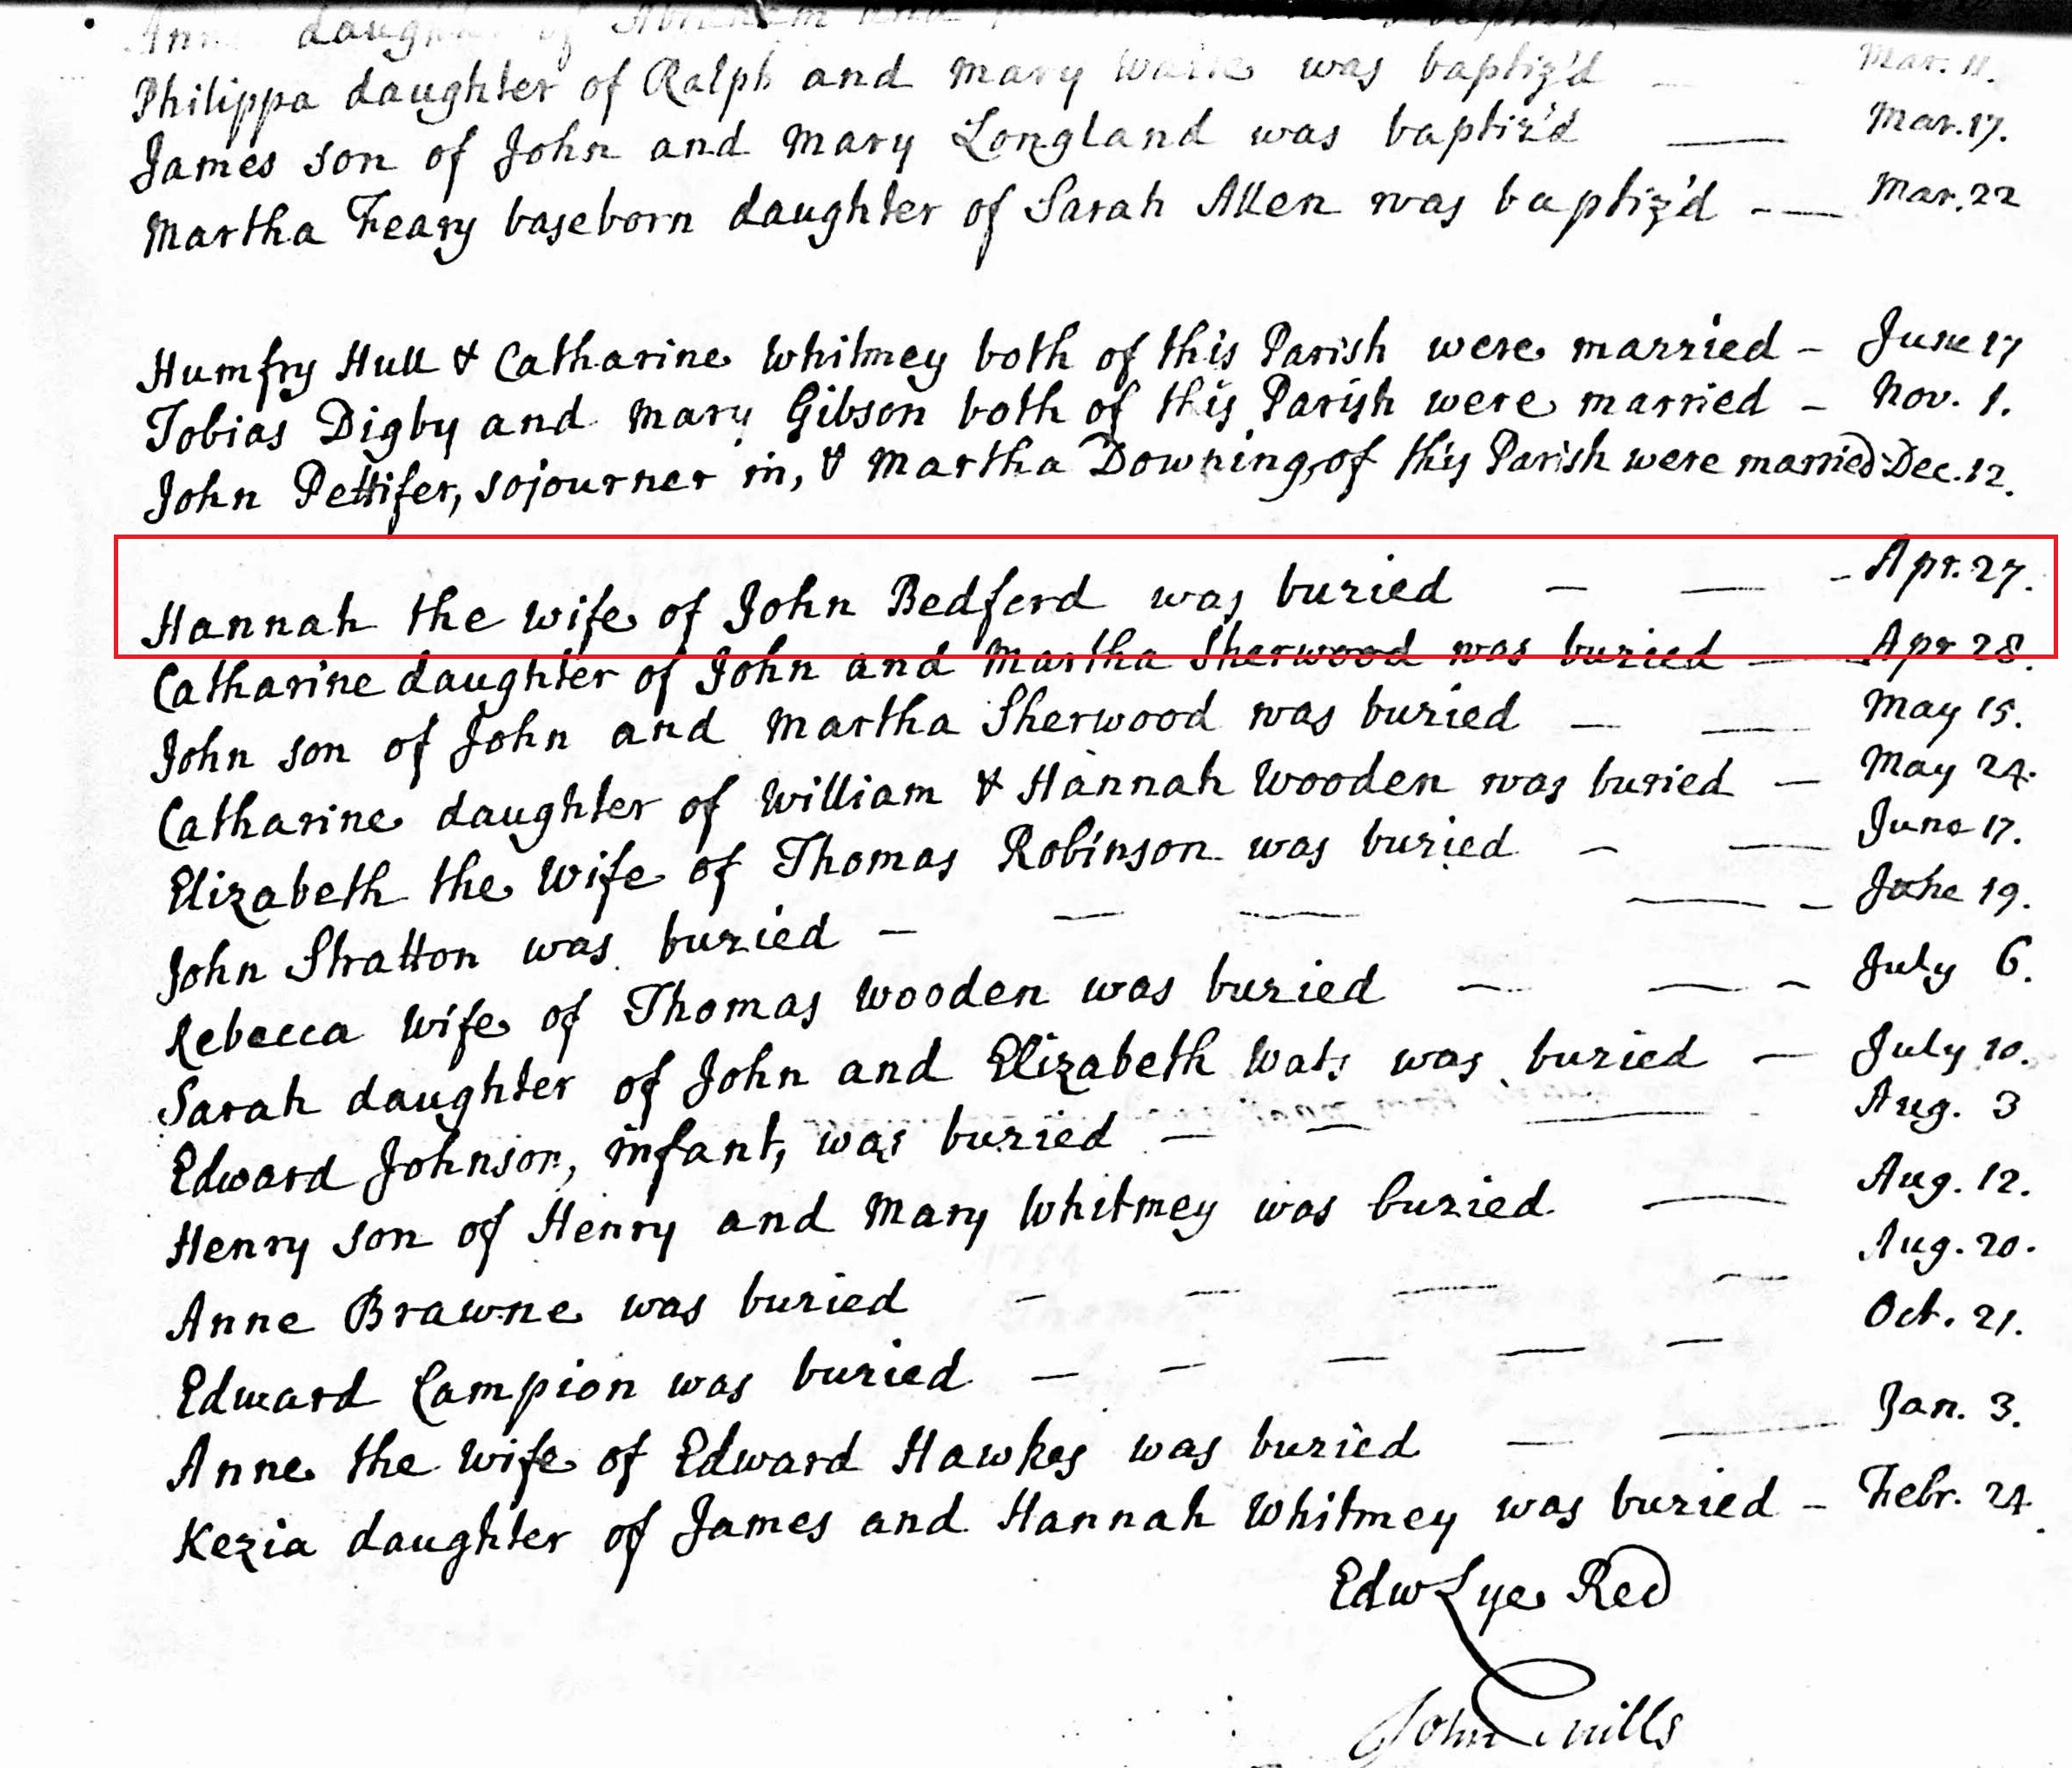 daughter of
Philippa daughter of Ralph and Mary was baptiz'd Mar. 11.
James son of John and Mary Longland was baptiz'd — Mar. 17.
Martha Feary baseborn daughter of Sarah Allen was baptiz'd - — Mar. 22
Humfry Hull & Catharine Whitmey both of this Parish were married - June 17
Tobias Digby and Mary Gibson both of this Parish were married - Nov. 1.
John Pettifer, sojourner in, & Martha Downing, of this Parish were married Dec. 12.
Hannah the wife of John Bedford was buried — — - Apr. 27.
Catharine daughter of John and Martha Sherwood was buried — Apr 28.
John son of John and Martha Sherwood was buried — — May 15.
Catharine daughter of William & Hannah Wooden was buried — May 24.
Elizabeth the wife of Thomas Robinson was buried - — June 17.
John Stratton was buried - — — — - June 19.
Rebecca wife of Thomas Wooden was buried — — - July 6.
Sarah daughter of John and Elizabeth Wats was buried — July 10.
Edward Johnson, infant, was buried — — — Aug. 3
Henry son of Henry and Mary Whitmey was buried — Aug. 12.
Anne Brawne was buried - — — — Aug. 20.
Edward Campion was buried — - — — — Oct. 21.
Anne the wife of Edward Hawkes was buried — — Jan. 3.
Kezia daughter of James and Hannah Whitmey was buried - Febr. 24.
Edw Lye Rec
John Mills